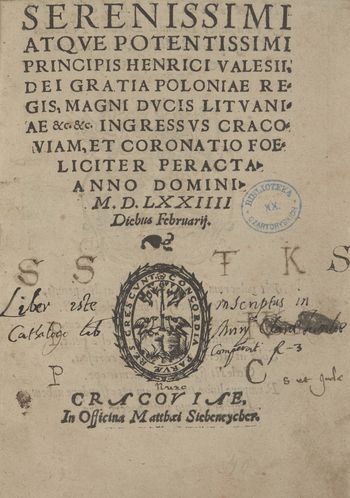 SERENISSIMI
ATQVE POTENTISSIMI
PRINCIPIS HENRICI VALESII,
DEI GRATIA POLONIAE RE-
GIS, MAGNI DVCIS LITVANI-
AE &c. &c. INGRESSVS CRACO-
VIAM, ET CORONATIO FOE-
LICITER PERACTA
ANNO DOMINI
M. D. LXXIIII
Diebus Februarij.
BIBLIOTEKA
XX.
CZARTORYSKICH
S S T K S
CONCORDIA PARVAE RES CRESCVNT
Liber iste inscriptus in
Catalogo lib
Comparat f-3
P C
CRACOVIAE,
In Officina Matthæi Siebeneycher.